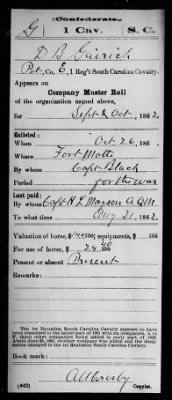 Confederate.
G 1 Cav. S. C.
D B
Pvt, Co. E, 1 Reg't South Carolina Cavalry.
Appears on
Company Muster Roll
of the organization named above,
for Sept & Oct, 1862.
Enlisted:
When Oct 26, 186 .
Where Fort Motte
By whom Capt Black
Period for the war
Last paid:
By whom Capt H. L. Mayson A QM
To what time Aug 31, 1862.
Valuation of horse, $ /100; equipments, $ /100
For use of horse, 24 40/100
Present or absent Present
Remarks:
The 1st Battalion South Carolina Cavalry appears to have
been organized in the latter part of 1861 with
three other companies being added in early part of 1862.
About June 25, 1862, another company was added and the
designation changed to the 1st Regiment South Carolina Cavalry.
Book mark:
(642) Copyist.